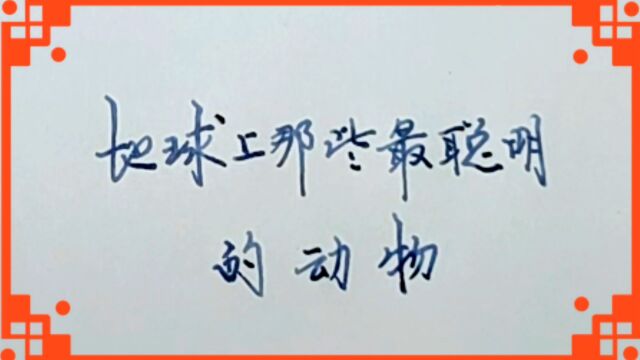 地球上那些最聪明
的动物